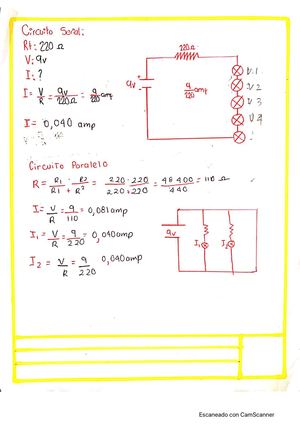 Circuito Serial:
Rt: 220 Ω
V: 9v
I: ?
I = V/R = 9v/220Ω = 9/220 amp
I = 0,040 amp
220Ω
9v
9/220 amp
V.1
V 2
V 3
V 4
Circuito Paralelo
R = R1 · R2 / R1 + R2 = 220 · 220 / 220 + 220 = 48 400 / 440 = 110 Ω
I = V/R = 9/110 = 0,081 amp
I1 = V/R = 9/220 = 0,040 amp
I2 = V/R = 9/220 0,040 amp
9v
I1
I2
Escaneado con CamScanner